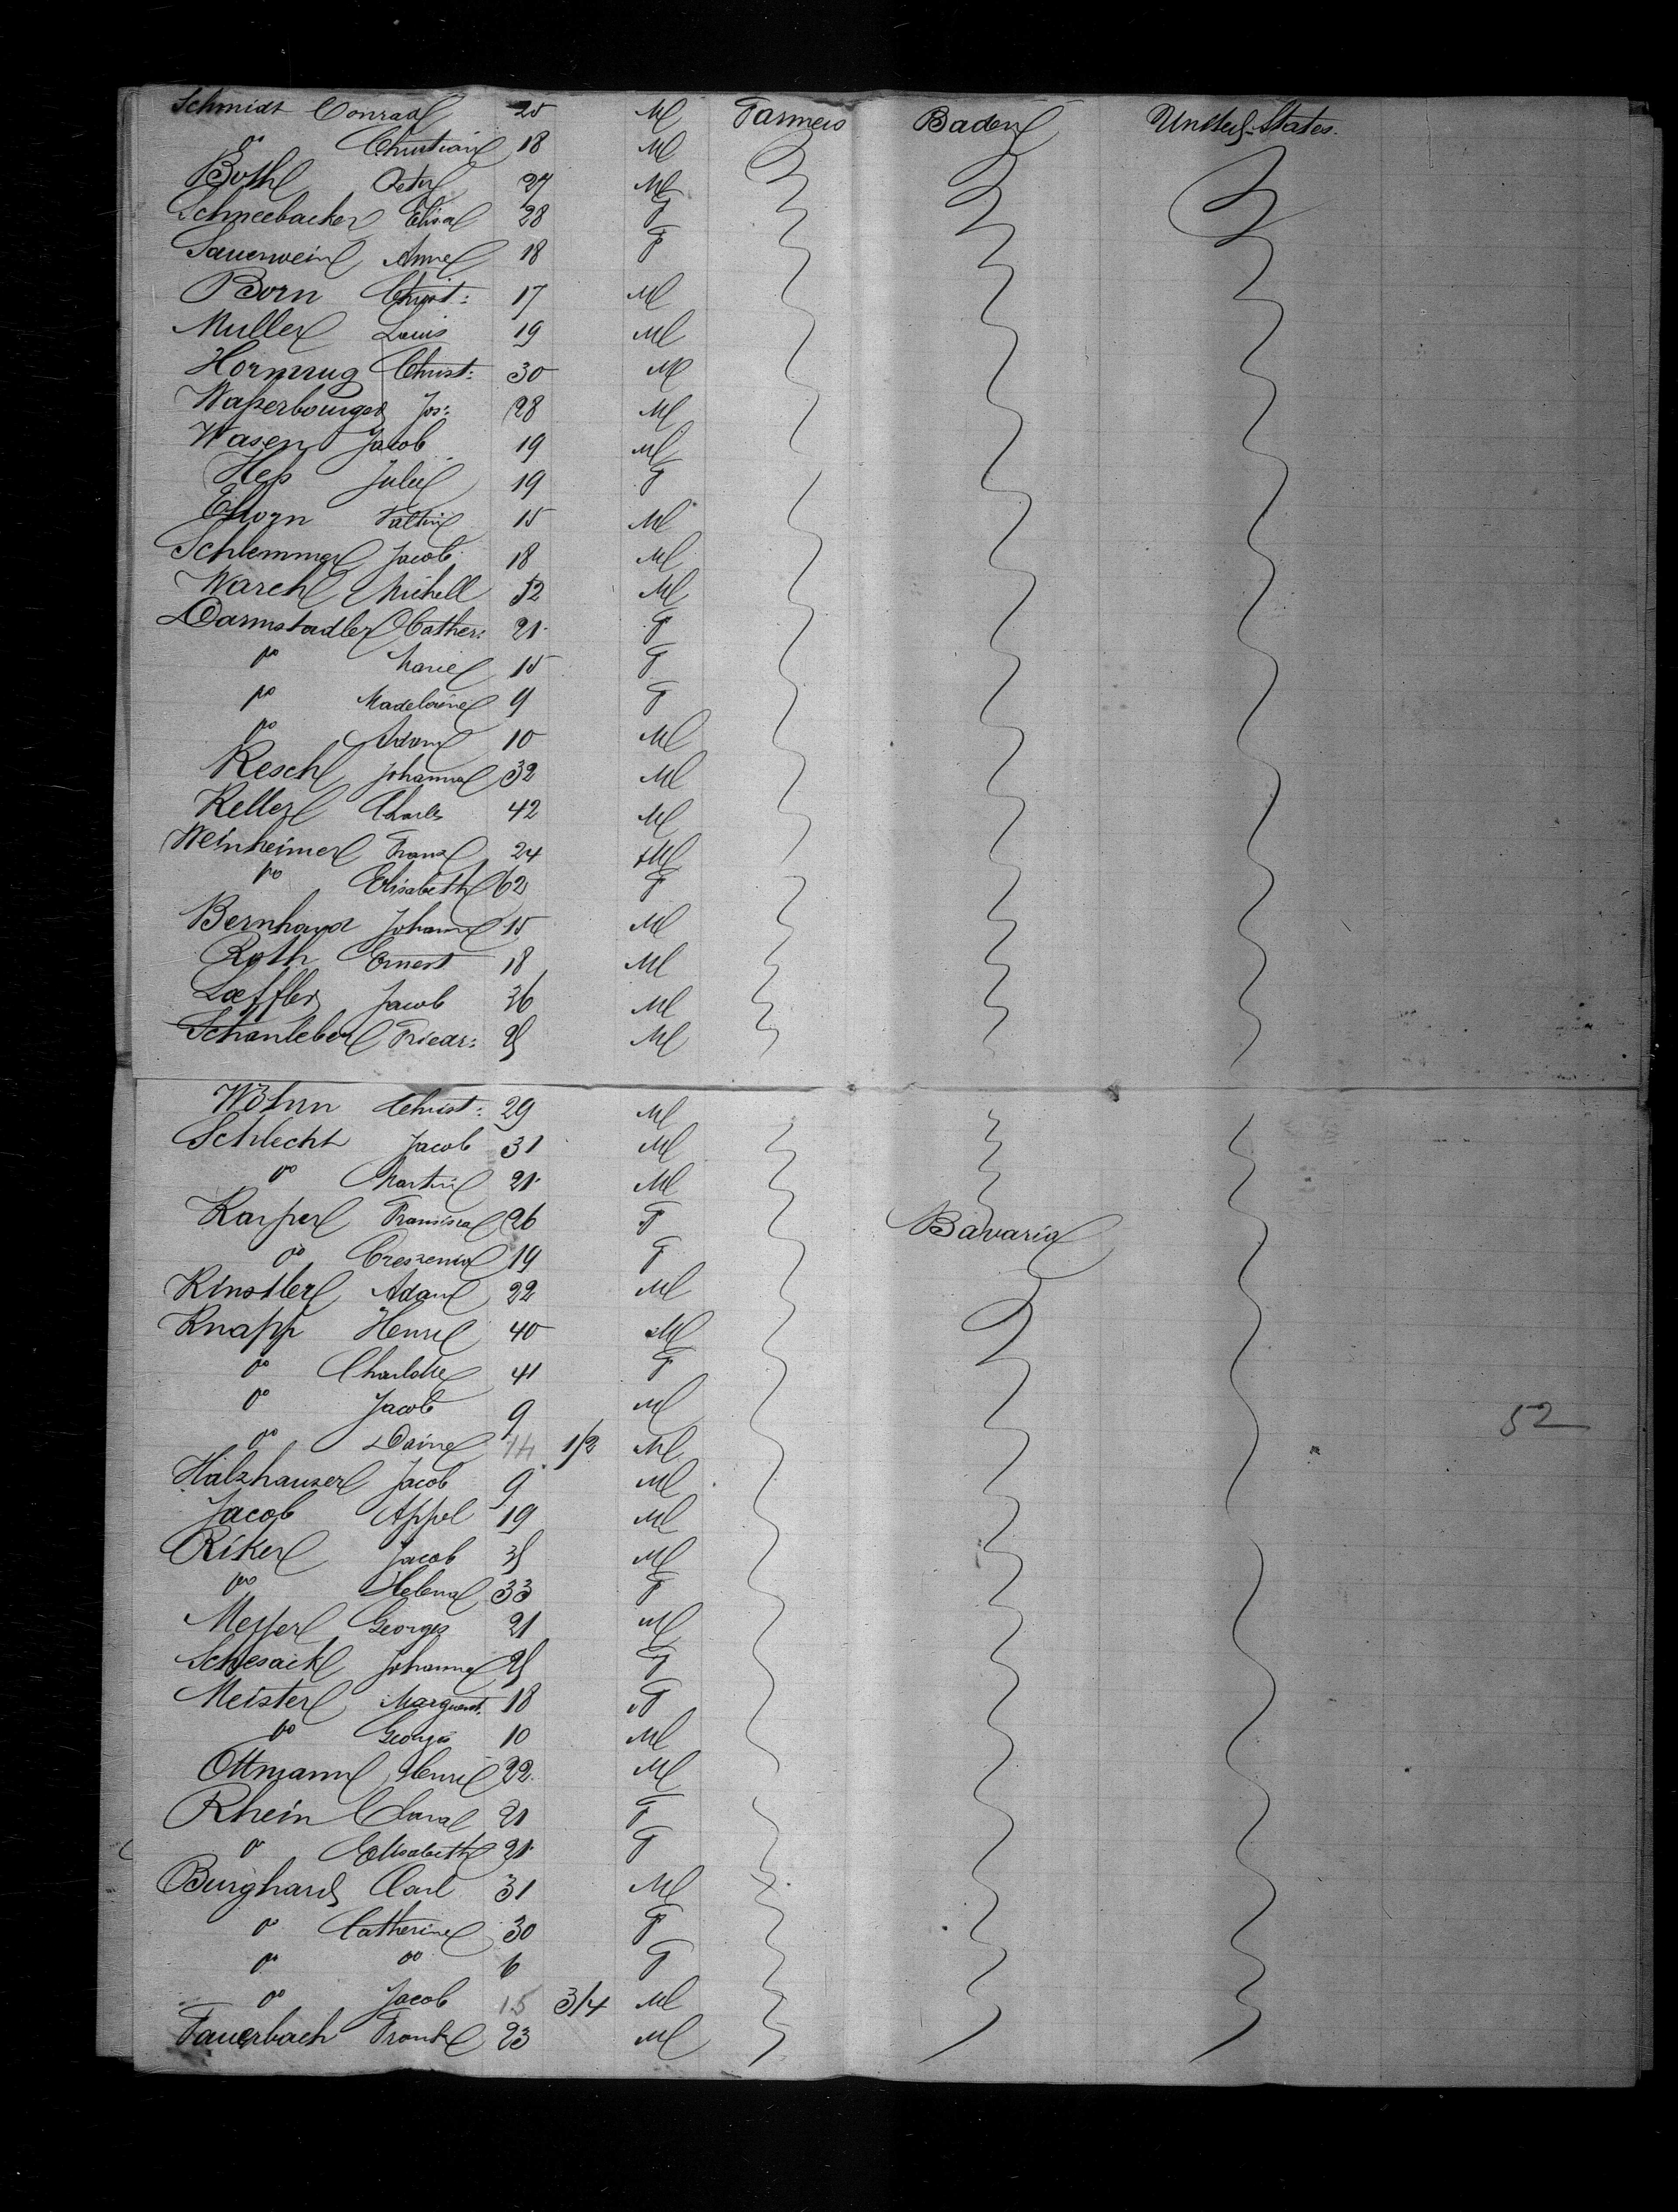 Schmidt Conrad 25 M Farmers Baden United-States.
do Christian 18 M
Both Peter 27 M
Schneebacker Elisa 28 F
Sauerwein Anne 18 F
Born Christ: 17 M
Muller Louis 19 M
Hornung Christ: 30 M
Waßerbourger Jos: 28 M
Wasen Jacob 19 M
Heß Julie 19 F
Ehorn Valtin 15 M
Schlemmer Jacob 18 M
March Michell 52 M
Darmstadler Cather: 21 F
do Marie 15 F
do Madeleine 9 F
do Adam 10 M
Resch Johanna 32 M
Keller Charles 42 M
Weinheimer Franz 24 M
do Elisabeth 62 F
Bernhard Johann 15 M
Roth Ernest 18 M
Loeffler Jacob 36 M
Schanleber Friedr: 25 M
Wöhrn Christ: 29 M
Schlecht Jacob 31 M
do Martin 21 M
Karper Francisca 26 F Bavaria
do Creszenia 19 F
Kinstler Adam 22 M
Knapp Henri 40 M
do Charlotte 41 F
do Jacob 9 M
do Daniel 14 1/2 M 52
Halzhauser Jacob 9 M
Jacob Appel 19 M
Riker Jacob 35 M
do Helena 33 F
Meßer Georges 21 M
Schesack Johanna 25 F
Meister Marguerit. 18 F
do Georges 10 M
Ottmann Henri 22 M
Rhein Clara 21 F
do Elisabeth 21 F
Burghard Carl 31 M
do Catherine 30 F
do do 6 F
do Jacob 15 3/4 M
Fauerbach Frank 23 M